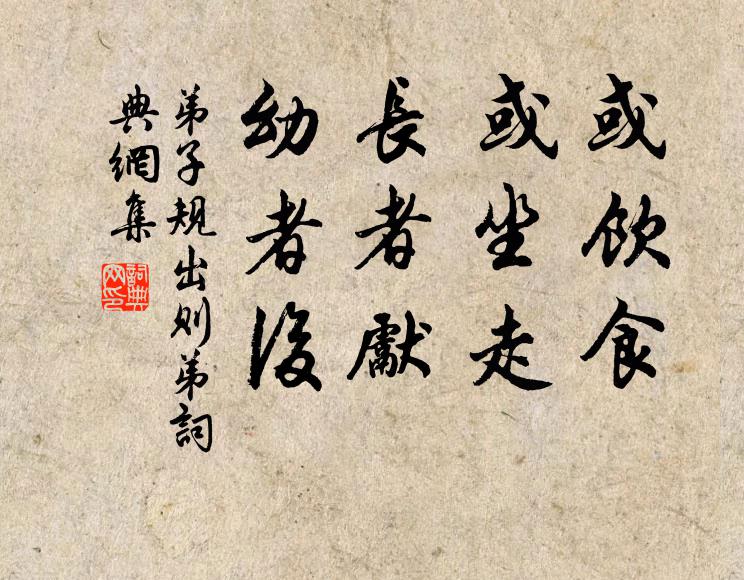 或飲食
或坐走
長者獻
幼者後
弟子規出则弟詞
典網集
詞典
网印